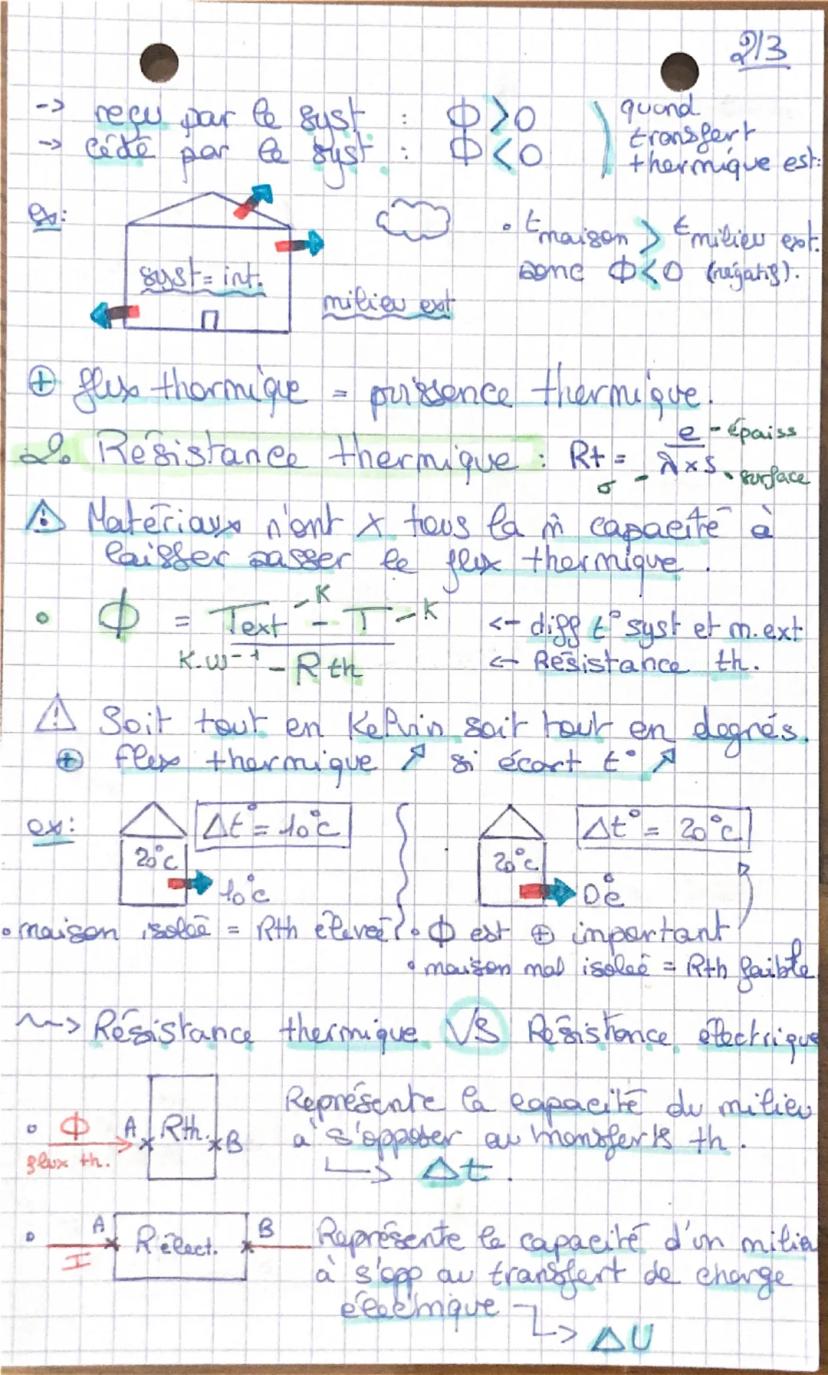 2/3
-> reçu par le syst : Φ>0
-> cédé par le syst : Φ<0
quand
transfert
thermique est:
ex:
syst= int.
milieu ext
• tmaison > tmilieu ext.
donc Φ<0 (négatif).
⊕ flux thermique = puissance thermique.
2. Résistance thermique : Rt = e/λ×S
- épaiss
- surface
⚠ Matériaux n'ont × tous la m̂ capacité à
laisser passer le flux thermique.
• Φ = Text - T / Rth
- K
- K
K.W⁻¹ -
<- diff t° syst et m.ext
<- Résistance th.
⚠ Soit tout en Kelvin soit tout en degrés.
⊕ flux thermique ↗ si écart t° ↗
ex:
Δt° = 10°c
20°c
10°c
Δt° = 20°c
20°c
0°c
• maison isolée = Rth élevée
• Φ est ⊕ important
• maison mal isolée = Rth faible
~> Résistance thermique VS Résistance électrique
• Φ A Rth. B
flux th.
Représente la capacité du milieu
à s'opposer au transferts th.
↳ Δt.
• I A R élect. B
Représente la capacité d'un milieu
à s'opp au transfert de charge
électrique
↳ ΔU